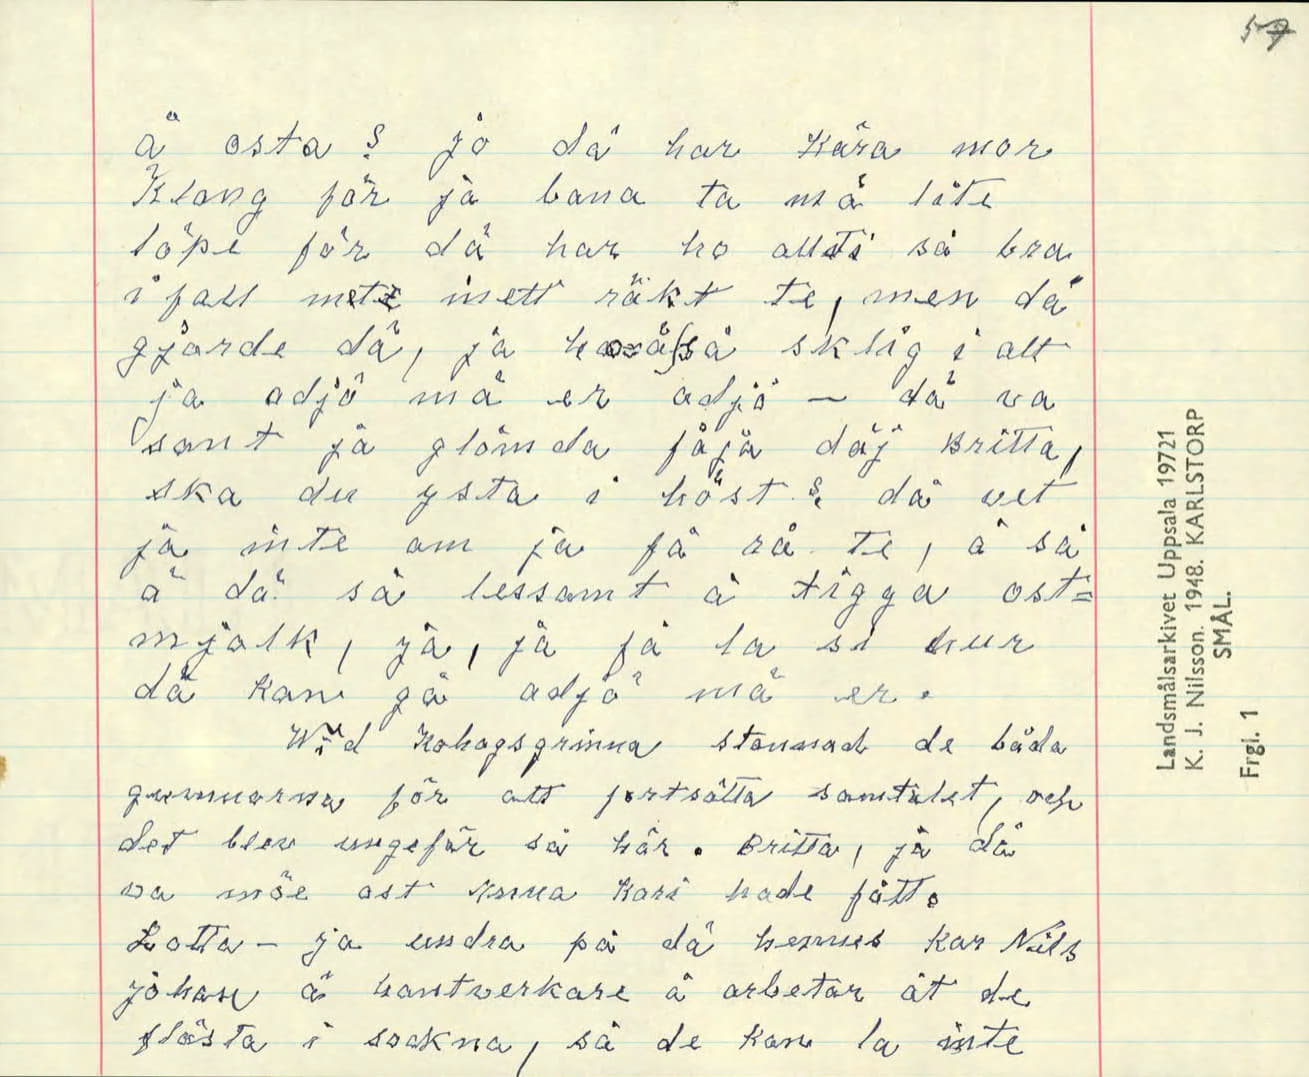 57
ä osta? jo dä har kära mor
Klang för ja bana ta mä lite
löpe för dä har ho allti så bra
i fall mett inett räkt te, men dä
gjorde dä, ja ha så sklig i alt
ja adjö mä er adjö - dä va
sant ja glömda fåja däj Britta,
ska du ysta i höst? dä vet
ja inte om ja få rå te, å så
ä dä så lessamt å tigga ost=
mjölk, ja, ja få la si hur
dä kan gå adjö mä er.
Wid Kohagsgrinna stannade de båda
gummorna för att fortsätta samtalet, och
det blev ungefär så här. Britta, ja dä
va möe ost Anna Kari hade fått.
Lotta - ja undra på dä hennes kar Nils
johan ä hantverkare å arbetar åt de
flästa i sockna, så de kan la inte
Landsmålsarkivet Uppsala 19721
K. J. Nilsson. 1948. KARLSTORP
SMÅL.
Frgl. 1